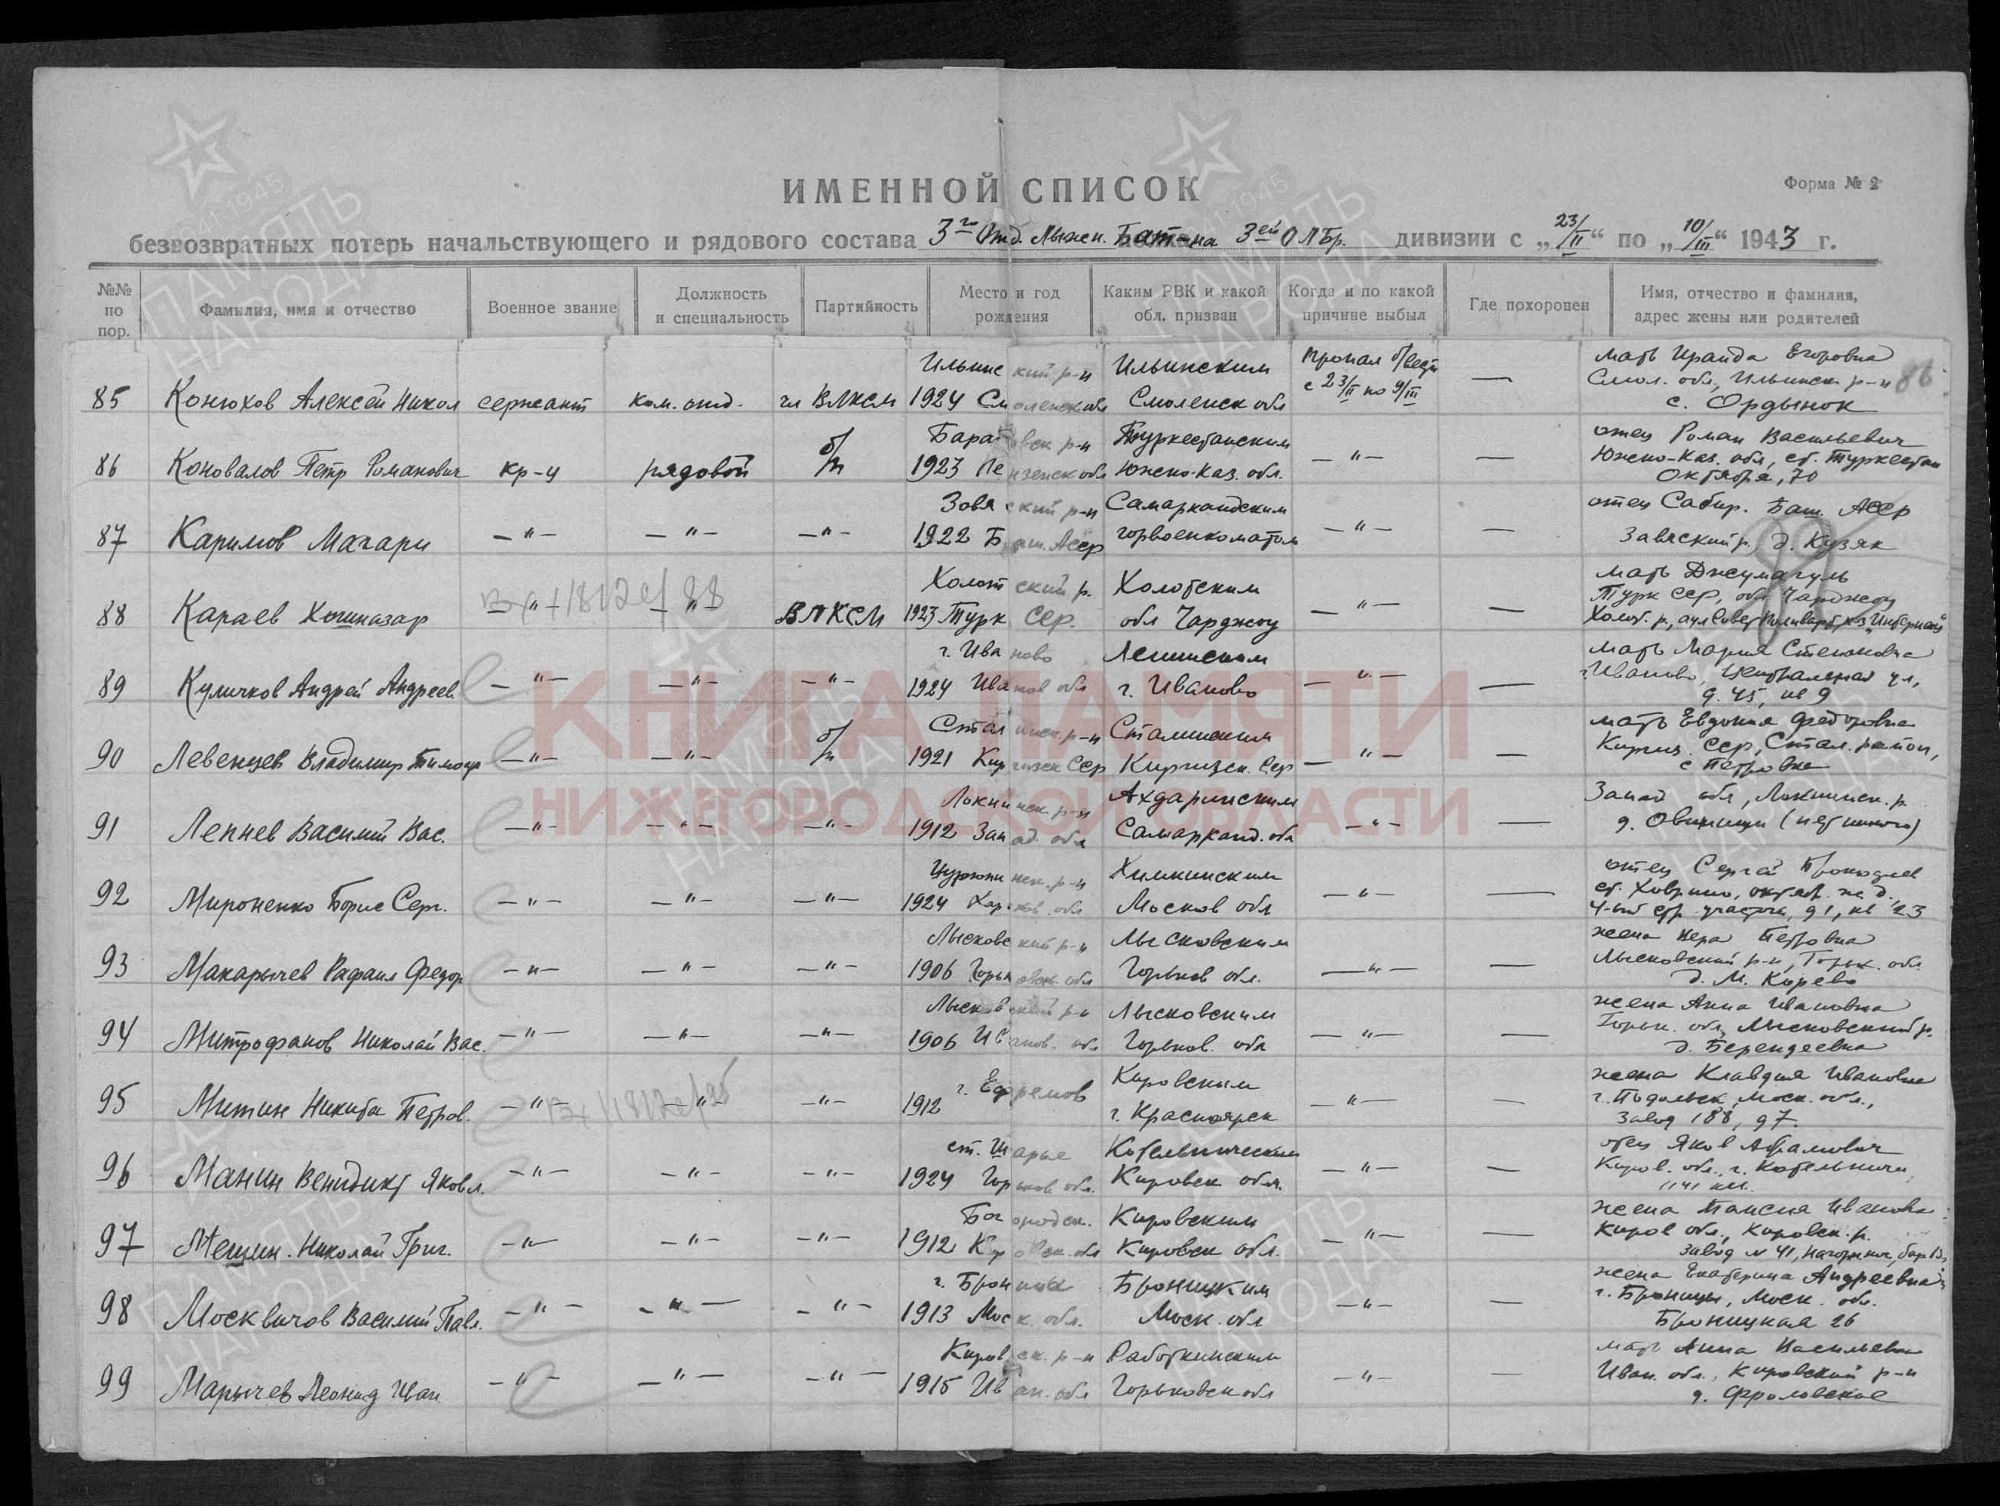 ИМЕННОЙ СПИСОК
Форма № 2
безвозвратных потерь начальствующего и рядового состава 3го Отд. Лыжн. Бат-на 3ей ОЛБр. дивизии с „23/II“ по „10/III“ 1943 г.
№№ по пор. Фамилия, имя и отчество Военное звание Должность и специальность Партийность Место и год рождения Каким РВК и какой обл. призван Когда и по какой причине выбыл Где похоронен Имя, отчество и фамилия, адрес жены или родителей
86
Ильинский р-н Ильинским Пропал б/вести мать Ираида Егоровна
85 Конюхов Алексей Никол сержант ком. отд. чл ВЛКСМ 1924 Смоленск обл Смоленск обл с 23/II по 9/III — Смол. обл, Ильинск р-н
с. Ордынок
р-н Туркестанским отец Роман Васильевич
86 Коновалов Петр Романович кр-ц рядовой б/п 1923 Пензенск обл Южно-Каз. обл. — " — — Южно-Каз. обл, ст. Туркестан
Октября, 70
р-н Самаркандским отец Сабир. Баш. АССР
87 Каримов Магари — " — — " — — " — 1922 Баш. АССР горвоенкоматом — " — — д. Кузяк
Холотский р. Холотским мать Джумагуль
88 Караев Хошназар — " — — " — ВЛКСМ 1923 Турк ССР. обл Чарджоу — " — — Турк ССР, обл Чарджоу
г. Иваново Ленинским мать Мария Степановна
89 Куличков Андрей Андреев. — " — — " — — " — 1924 Иванов обл г. Иваново — " — — г. Иваново, Центральная ул,
д. 45, кв 9
Сталинск. р-н Сталинским мать Евдокия Федоровна
90 Левенцев Владимир Тимоф — " — — " — б/п 1921 Киргизск ССР Киргизск. ССР — " — — Киргиз. ССР, Стал. район,
с Петровка
Локнинск. р-н Ахдаринским Запад обл, Локнинск. р.
91 Лепнев Василий Вас. — " — — " — — " — 1912 Запад. обл Самарканд. обл — " — — д. Овинищи (нет никого)
р-н Химкинским отец Сергей
92 Мироненко Борис Серг. — " — — " — — " — 1924 Харьков. обл Москов обл — " — — ст. Ховрино, октябр. ж д.,
4-ый стр. участок, д 1, кв 23
Лысковский р-н Лысковским жена Вера Петровна
93 Макарычев Рафаил Федор. — " — — " — — " — 1906 Горьковск. обл Горьков обл. — " — — Лысковский р-н, Горьк. обл
д. М. Курево
Лысковский р-н Лысковским жена Анна Ивановна
94 Митрофанов Николай Вас. — " — — " — — " — 1906 Иванов. обл Горьков. обл — " — — Горьк. обл, Лысковский р.
д. Берендеевка
г. Ефремов Кировским жена Клавдия Ивановна
95 Митин Никита Петров. — " — — " — — " — 1912 г. Красноярск — " — — г. Подольск, Моск. обл.,
завод 188, 97.
ст. Шарье Котельническим отец Яков Абрамович
96 Манин Венидикт Яковл. — " — — " — — " — 1924 Горьков обл. Кировск обл. — " — — Киров. обл., г. Котельнич,
1141 км.
Богородск. Кировским жена Таисия Ивановна
97 Мешин. Николай Григ. — " — — " — — " — 1912 Кировск. обл Кировск обл. — " — — Киров обл., Кировск. р.
завод № 41
г. Бронницы Бронницким жена Екатерина Андреевна
98 Москвичов Василий Павл. — " — — " — — " — 1913 Моск. обл. Моск. обл — " — — г. Бронницы, Моск. обл.
Бронницкая 26
Кировск. р-н Работкинским мать Анна Васильевна
99 Марычев Леонид Иван. — " — — " — — " — 1915 Иван. обл Горьковск обл — " — — Иван. обл., Кировский р-н
д. Фроловское
КНИГА ПАМЯТИ
НИЖЕГОРОДСКОЙ ОБЛАСТИ
ПАМЯТЬ НАРОДА
1941-1945